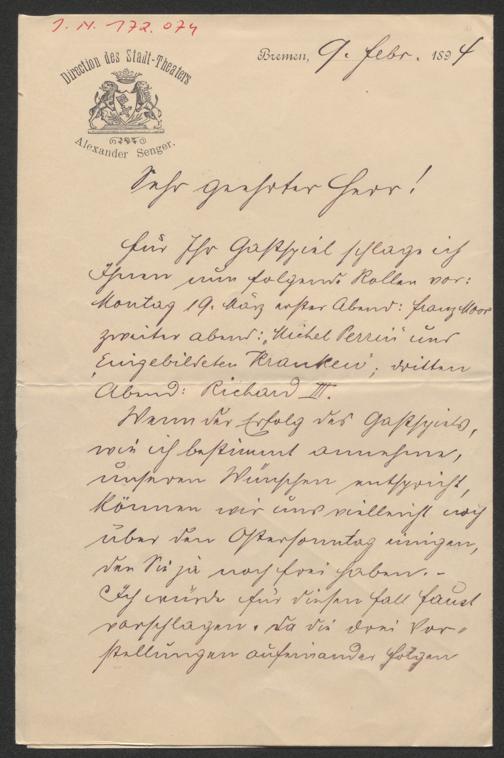 I. N. 172.074
Direction des Stadt-Theaters
Alexander Senger.
Bremen, 9. Febr. 1894
Sehr geehrter Herr!
Für Ihr Gastspiel schlage ich
Ihnen nun folgende Rollen vor:
Montag 19. März erster Abend: Franz Moor
zweiter Abend: „Michel Perrin" und
„Eingebildeten Kranken"; dritten
Abend: Richard III.
Wenn der Erfolg des Gastspiels,
wie ich bestimmt annehme,
unseren Wünschen entspricht,
können wir uns vielleicht noch
über den Ostersonntag einigen,
den Sie ja noch frei haben. –
Ich würde für diesen Fall Faust
vorschlagen. Da die drei Vor-
stellungen aufeinander folgen